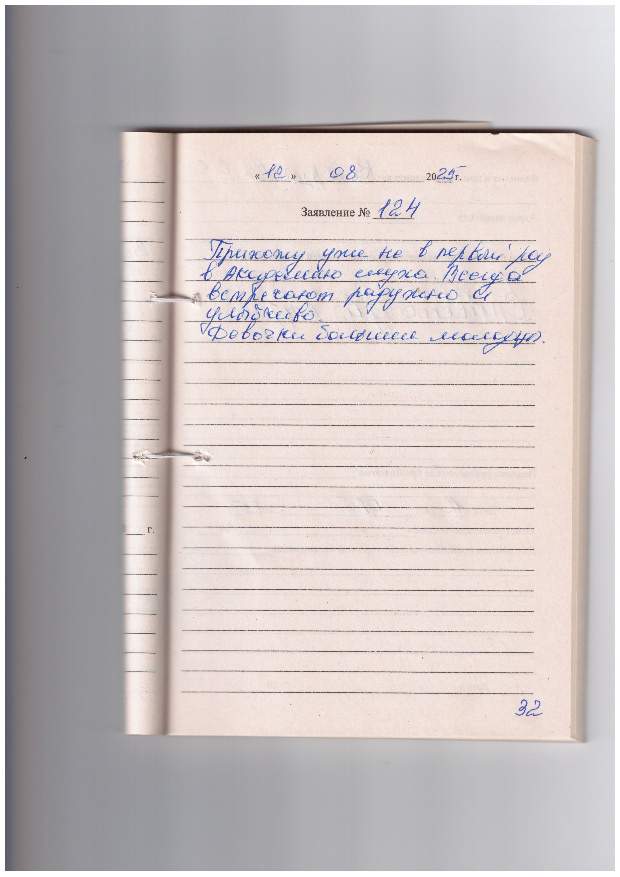 «12» 08 2025г.
Заявление № 124
Прихожу уже не в первый раз
в Академию слуха. Всегда
встречают радужно и
улыбчиво.
Девочки большие молодцы.
г.
32